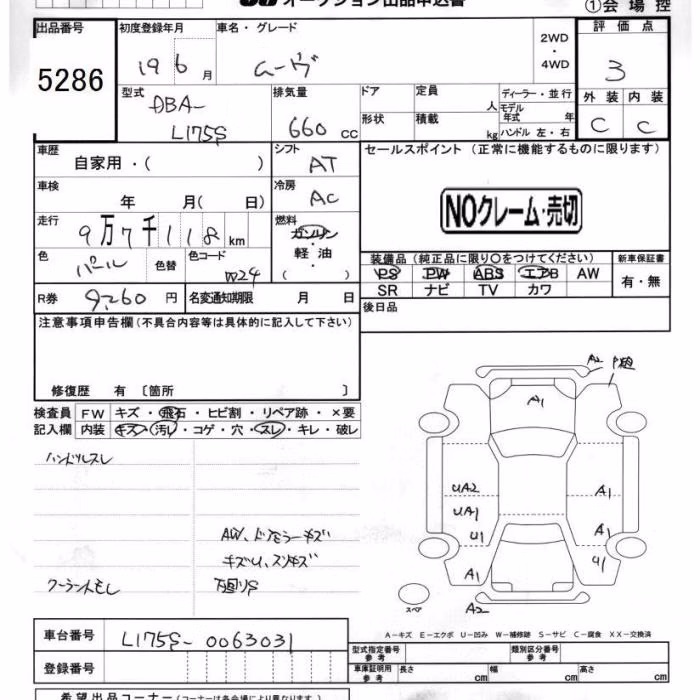 オークション出品申込書
①会場控
出品番号
5286
初度登録年月
19 6 月
車名・グレード
ムーヴ
2WD
・
4WD
評価点
3
型式
DBA-
L175S
排気量
660 cc
ドア
定員
人
形状
積載
kg
ディーラー・並行
モデル
年式
年
ハンドル 左・右
外装
内装
C
C
車歴
自家用・( )
シフト
AT
セールスポイント (正常に機能するものに限ります)
車検
年 月( 日)
冷房
AC
NOクレーム・売切
走行
9万7千118 km
燃料
ガソリン
軽油
( )
色
パール
色替
色コード
W24
装備品 (純正品に限り○をつけてください)
新車保証書
PS PW ABS エアB AW
SR ナビ TV カワ
有・無
R券
9,260 円
名変通知期限
月 日
後日品
注意事項申告欄 (不具合内容等は具体的に記入して下さい)
修復歴 有 〔箇所 〕
検査員
記入欄
FW キズ・飛石・ヒビ割・リペア跡・×要
内装 キズ・汚レ・コゲ・穴・スレ・キレ・破レ
ハンドルスレ
AW、ドアミラーキズ
キズU、スリキズ
クーラントモレ
下回りS
A2
A1
UA2
UA1
U1
A1
A1
A1
U1
A2
スペア
A-キズ E-エクボ U-凹み W-補修跡 S-サビ C-腐食 XX-交換済
車台番号
L175S-0063031
登録番号
型式指定番号
参考
類別区分番号
参考
車庫証明用
参考
長さ
cm
幅
cm
高さ
cm
希望出品コーナー (コーナーは各会場により異なります。)